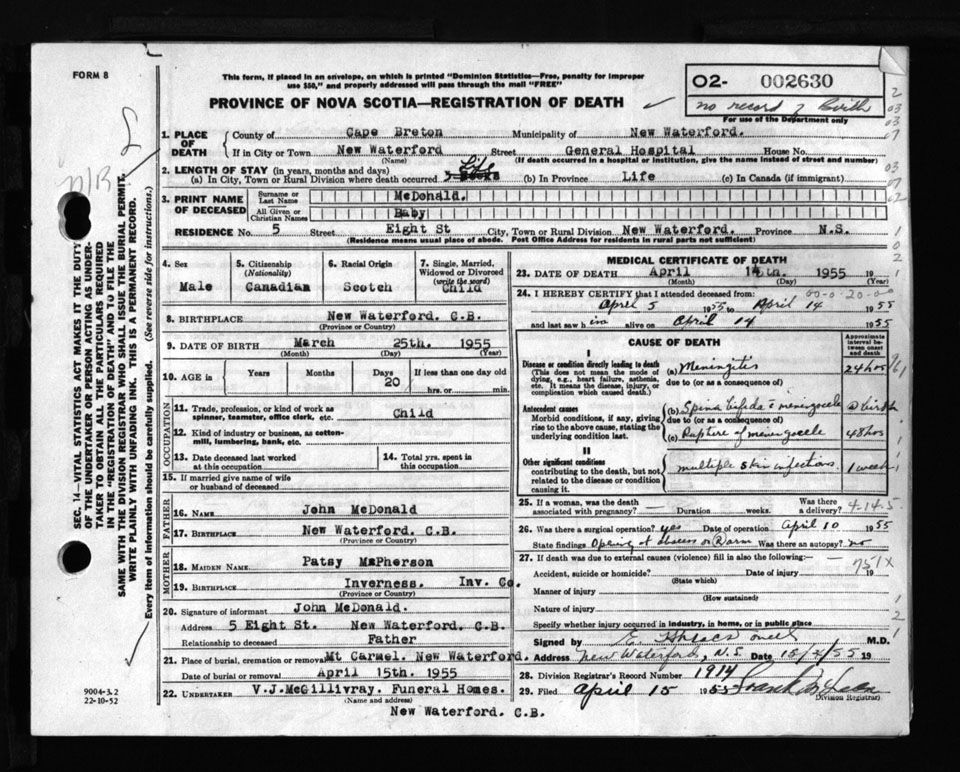 FORM 8
This form, if placed in an envelope, on which is printed "Dominion Statistics—Free, penalty for improper
use $50," and properly addressed will pass through the mail "FREE"
PROVINCE OF NOVA SCOTIA—REGISTRATION OF DEATH
02- 002630
no record of Birth
For use of the Department only
1. PLACE OF DEATH
County of Cape Breton Municipality of New Waterford.
If in City or Town New Waterford Street General Hospital House No.
(Name) (If death occurred in a hospital or institution, give the name instead of street and number)
2. LENGTH OF STAY (in years, months and days) Life
(a) In City, Town or Rural Division where death occurred (b) In Province Life (c) In Canada (if immigrant)
3. PRINT NAME OF DECEASED
Surname or Last Name McDonald.
All Given or Christian Names Baby
RESIDENCE No. 5 Street Eight St City, Town or Rural Division New Waterford. Province N.S.
(Residence means usual place of abode. Post Office Address for residents in rural parts not sufficient)
4. Sex Male
5. Citizenship (Nationality) Canadian
6. Racial Origin Scotch
7. Single, Married, Widowed or Divorced (write the word) Child
8. BIRTHPLACE New Waterford. C.B.
(Province or Country)
9. DATE OF BIRTH March 25th. 1955
(Month) (Day) (Year)
10. AGE in Years Months Days 20 If less than one day old
hrs. or min.
OCCUPATION
11. Trade, profession, or kind of work as spinner, teamster, office clerk, etc. Child
12. Kind of industry or business, as cotton-mill, lumbering, bank, etc.
13. Date deceased last worked at this occupation
14. Total yrs. spent in this occupation
15. If married give name of wife or husband of deceased
FATHER
16. NAME John McDonald
17. BIRTHPLACE New Waterford. C.B.
(Province or Country)
MOTHER
18. MAIDEN NAME Patsy MaPherson
19. BIRTHPLACE Inverness. Inv. Co.
(Province or Country)
20. Signature of informant John McDonald.
Address 5 Eight St. New Waterford. C.B.
Relationship to deceased Father
21. Place of burial, cremation or removal Mt Carmel. New Waterford.
Date of burial or removal April 15th. 1955
22. UNDERTAKER V.J.McGillivray. Funeral Homes.
(Name and address)
New Waterford. C.B.
MEDICAL CERTIFICATE OF DEATH
23. DATE OF DEATH April 14th. 1955 19
(Month) (Day) (Year)
24. I HEREBY CERTIFY that I attended deceased from: 00-0-20-0-0
April 5 1955 to April 14 1955
and last saw him alive on April 14 1955
CAUSE OF DEATH
Approximate interval between onset and death
I
Disease or condition directly leading to death
(This does not mean the mode of dying, e.g., heart failure, asthenia, etc. It means the disease, injury, or complication which caused death.)
(a) Meningitis 24 hos
due to (or as a consequence of)
Antecedent causes
Morbid conditions, if any, giving rise to the above cause, stating the underlying condition last.
(b) Spina bifida c̄ meningocele @ birth
due to (or as a consequence of)
(c) Rupture of meningocele 48 hos
II
Other significant conditions
contributing to the death, but not related to the disease or condition causing it.
multiple skin infections 1 week
25. If a woman, was the death associated with pregnancy? — Duration weeks. Was there a delivery?
4-14-5
26. Was there surgical operation? yes Date of operation April 10 1955
State findings Opening of abscess on R arm Was there an autopsy? no
27. If death was due to external causes (violence) fill in also the following:—
Accident, suicide or homicide? Date of injury 19
751X
(State which)
Manner of injury
(How sustained)
Nature of injury
Specify whether injury occurred in industry, in home, or in public place
Signed by M.D.
Address New Waterford, N.S. Date 15/4/55 19
28. Division Registrar's Record Number 1914
29. Filed April 15 1955
Division Registrar
SEC. 14—VITAL STATISTICS ACT MAKES IT THE DUTY
OF THE UNDERTAKER OR PERSON ACTING AS UNDER-
TAKER TO OBTAIN ALL THE PARTICULARS REQUIRED
IN THE "REGISTRATION OF DEATH" AND TO FILE THE
SAME WITH THE DIVISION REGISTRAR WHO SHALL ISSUE THE BURIAL PERMIT.
WRITE PLAINLY WITH UNFADING INK. THIS IS A PERMANENT RECORD.
Every item of information should be carefully supplied. (See reverse side for instructions.)
N/R
9004-3.2
22-10-52